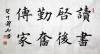 讀書
啓後
勤奮
傳家